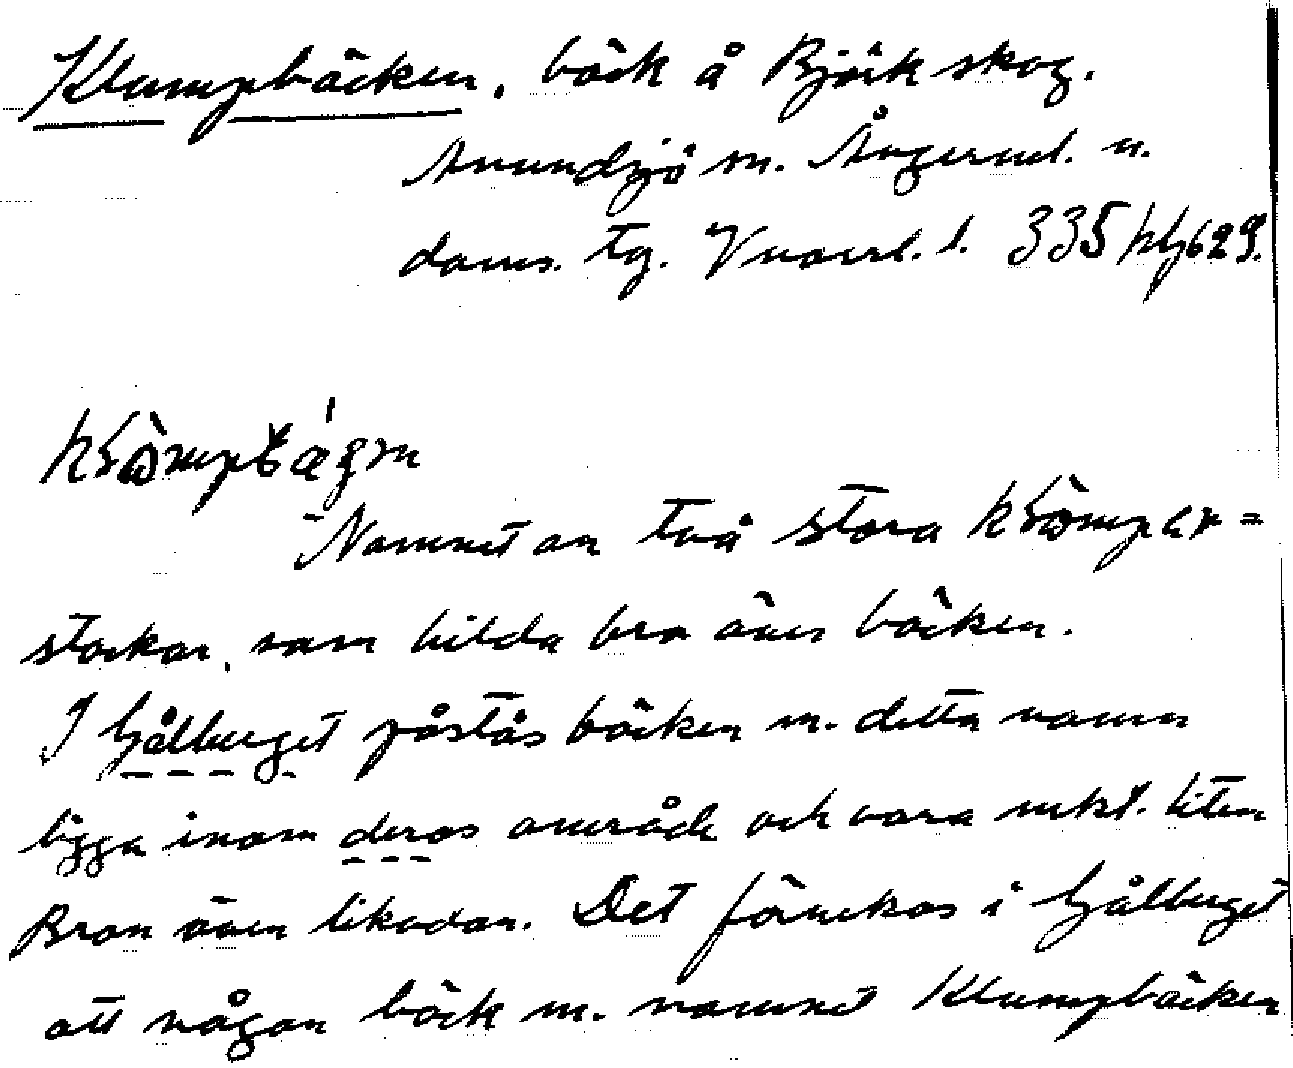 Klumpbäcken, bäck å Björk skog.
Anundsjö sn. Ångerml. n.
doms. tg. V norrl. l. 335
Namnet av två stora
stockar, som bilda bro över bäcken.
I Gålberget påstås bäcken m. detta namn
ligga inom deras område och vara mkt. liten
Bron även likadan. Det förnekas i Gålberget
att någon bäck m. namnet Klumpbäcken